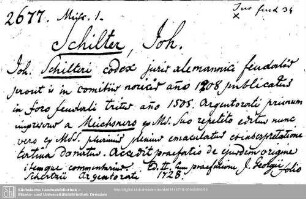 2677. Misc. 1.
Jus feud 34
x
Schilter, Joh.
Joh. Schilteri codex juris alemannici feudalis
prout is in comitiis noricis año 1208 publicatus
in foro feudali tritus año 1505. Argentorati primum
impressus a Meichsnero ex Ms. suo repetito editus nunc
vero ex MSS. plurimis plenius emaculatus et interpretatione
latina donatus. Accedit praefatio de ejusdem origine
itemque commentarius. Edit. cum praefatione J. Georgii
Schertzii Argentorati 1728. folio